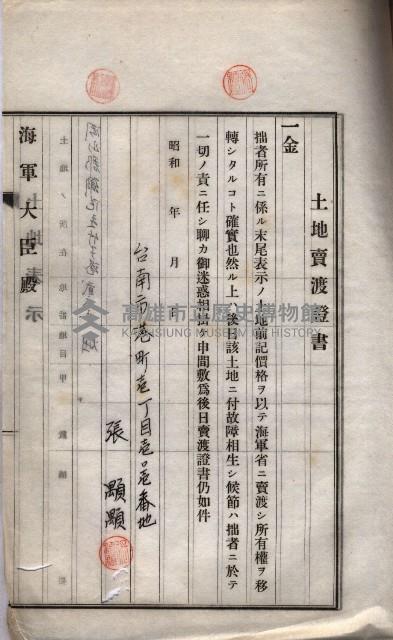 土地賣渡證書
一金
拙者所有ニ係ル末尾表示ノ土地前記價格ヲ以テ海軍省ニ賣渡シ所有權ヲ移
轉シタルコト確實也然ル上ハ後日該土地ニ付故障相生シ候節ハ拙者ニ於テ
一切ノ責ニ任シ聊カ御迷惑相掛ケ申間敷爲後日賣渡證書仍如件
昭和　年　月　日
台南市港町壱丁目壱四壱番地
張 顒顒
海軍大臣殿
高雄市立歷史博物館
KAOHSIUNG MUSEUM OF HISTORY